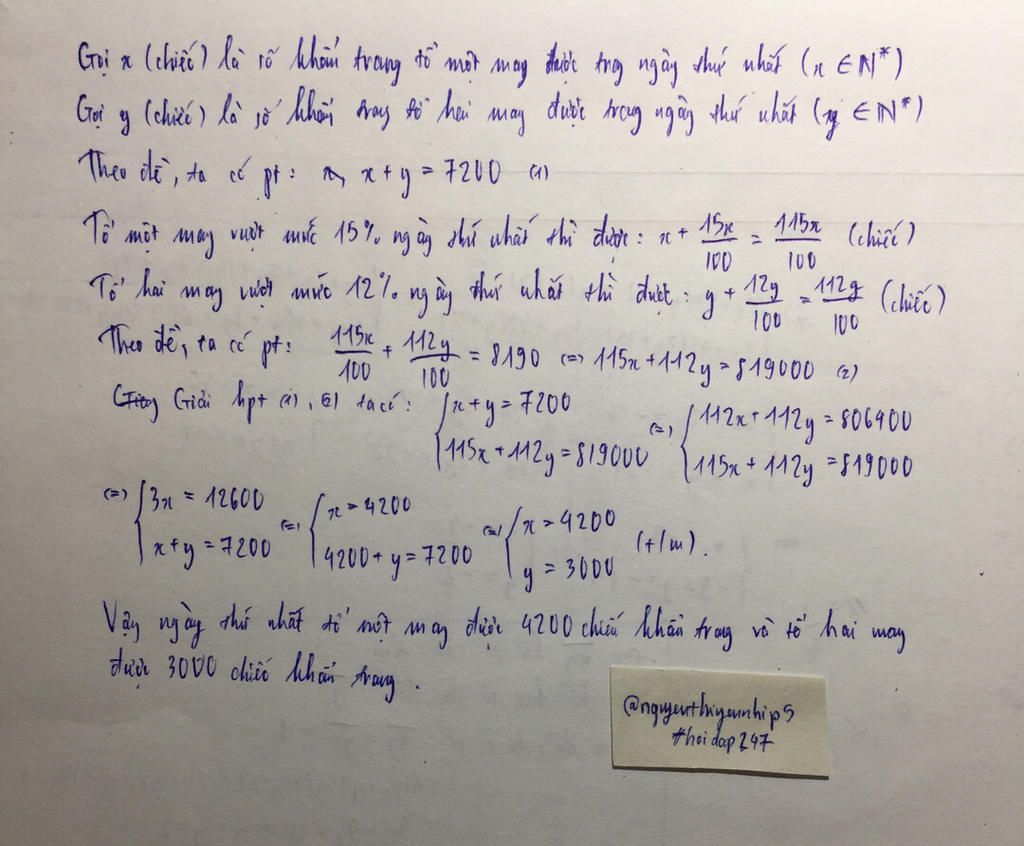 Gọi x (chiếc) là số khẩu trang tổ một may được trog ngày thứ nhất (x ∈ N*)
Gọi y (chiếc) là số khẩu trang tổ hai may được trong ngày thứ nhất (y ∈ N*)
Theo đề, ta có pt: x + y = 7200 (1)
Tổ một may vượt mức 15% ngày thứ nhất thì được: x + 15x/100 = 115x/100 (chiếc)
Tổ hai may vượt mức 12% ngày thứ nhất thì được: y + 12y/100 = 112y/100 (chiếc)
Theo đề, ta có pt: 115x/100 + 112y/100 = 8190 (=) 115x + 112y = 819000 (2)
Giải hpt (1), (2) ta có: { x + y = 7200 ; 115x + 112y = 819000 (=) { 112x + 112y = 806400 ; 115x + 112y = 819000
(=) { 3x = 12600 ; x + y = 7200 (=) { x = 4200 ; 4200 + y = 7200 (=) { x = 4200 ; y = 3000 (t/m).
Vậy ngày thứ nhất tổ một may được 4200 chiếc khẩu trang và tổ hai may
được 3000 chiếc khẩu trang.
@nguyenthiyennhip5
#hoidap247